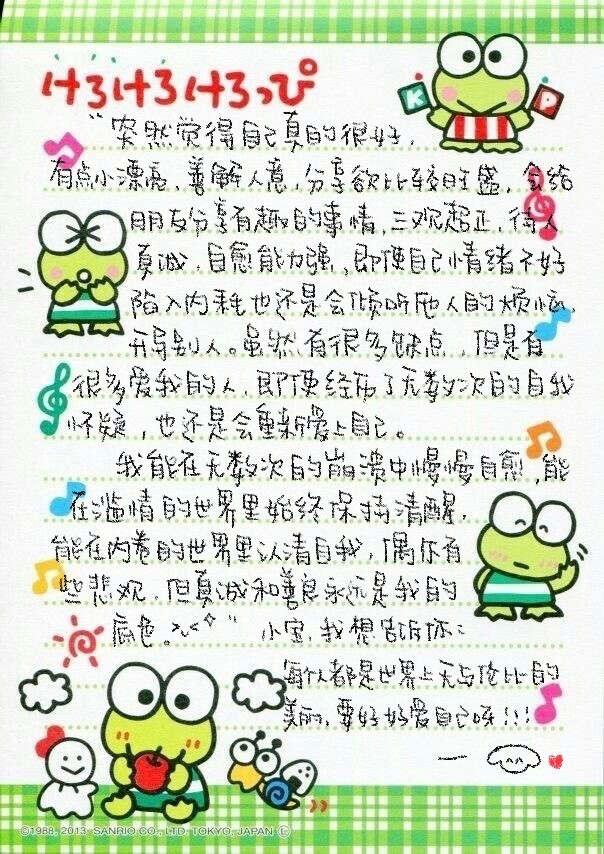 けろけろけろっぴ
K P
“突然觉得自己真的很好，
有点小漂亮，善解人意，分享欲比较旺盛，会给
朋友分享有趣的事情，三观超正，待人
真诚，自愈能力强，即使自己情绪不好
陷入内耗也还是会倾听他人的烦恼，
开导别人。虽然有很多缺点，但是有
很多爱我的人，即使经历了无数次的自我
怀疑，也还是会重新爱上自己。
我能在无数次的崩溃中慢慢自愈，能
在滥情的世界里始终保持清醒，
能在内卷的世界里认清自我，偶尔有
些悲观，但真诚和善良永远是我的
底色。” 小宝，我想告诉你：
每个人都是世界上无与伦比的
美丽，要好好爱自己呀！！！
©1988, 2013 SANRIO CO., LTD. TOKYO, JAPAN Ⓛ